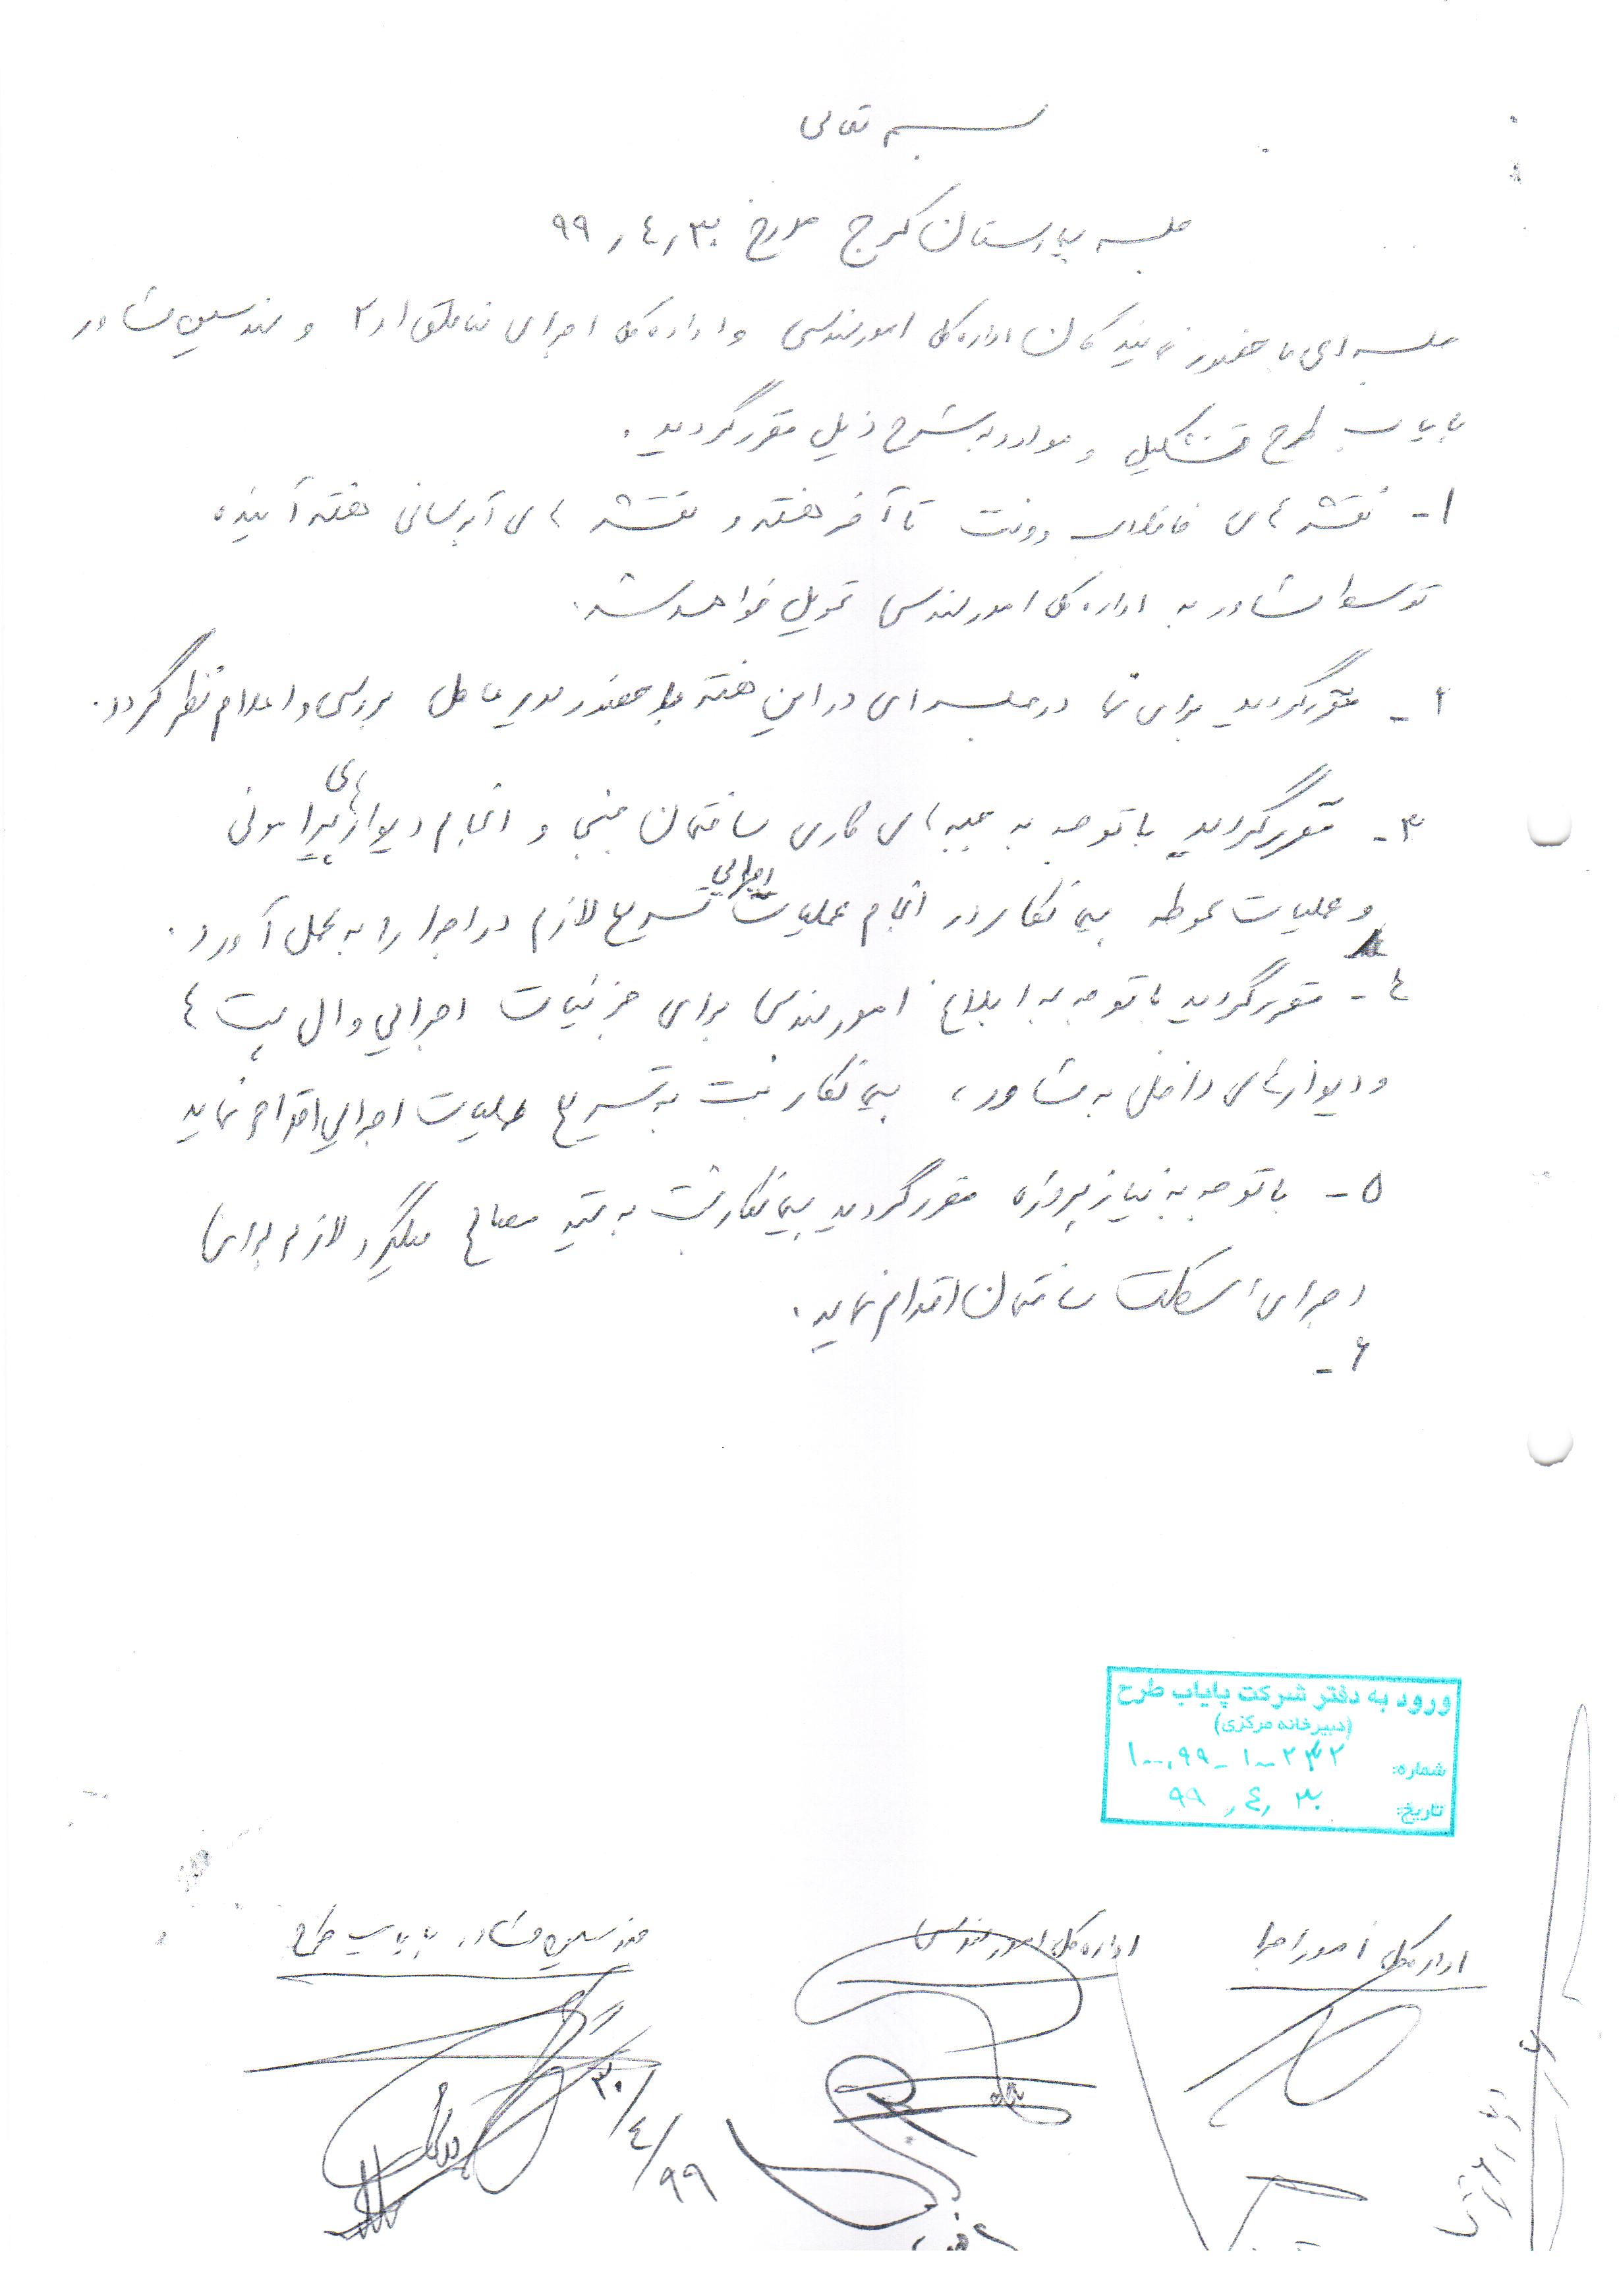 بسمه تعالی
جلسه بیمارستان کرج مورخ ۹۹٫۴٫۳۰
جلسه ای با حضور نمایندگان اداره کل امور مهندسی و اداره کل اجرای مناطق ۱و۲ و مهندسین مشاور
پایاب طرح تشکیل و موارد به شرح ذیل مقرر گردید.
۱- نقشه های فاضلاب و ونت تا آخر هفته و نقشه های آبرسانی هفته آینده
توسط مشاور به اداره کل امور مهندسی تحویل خواهد شد.
۲- مقرر گردید برای نما در جلسه ای در این هفته با حضور مدیرعامل بررسی و اعلام نظر گردد.
۳- مقرر گردید با توجه به جبهه های کاری ساختمان جنبی و انجام دیوارهای پیرامونی
و عملیات محوطه پیمانکار در انجام عملیات اجرایی تسریع لازم در اجرا را به عمل آورد.
۴- مقرر گردید با توجه به ابلاغ امور مهندسی برای جزئیات اجرایی وال پست ها
و دیوارهای داخلی به مشاور، پیمانکار نسبت به تسریع عملیات اجرایی اقدام نماید
۵- با توجه به نیاز پروژه مقرر گردید پیمانکار نسبت به تهیه مصالح میلگرد لازم برای
اجرای اسکلت ساختمان اقدام نماید.
۶-
ورود به دفتر شرکت پایاب طرح
(دبیرخانه مرکزی)
شماره:
تاریخ: ۹۹٫۴٫۳۰
اداره کل امور اجرا
اداره کل امور مهندسی
مهندسین مشاور پایاب طرح
۹۹/۴/۳۰